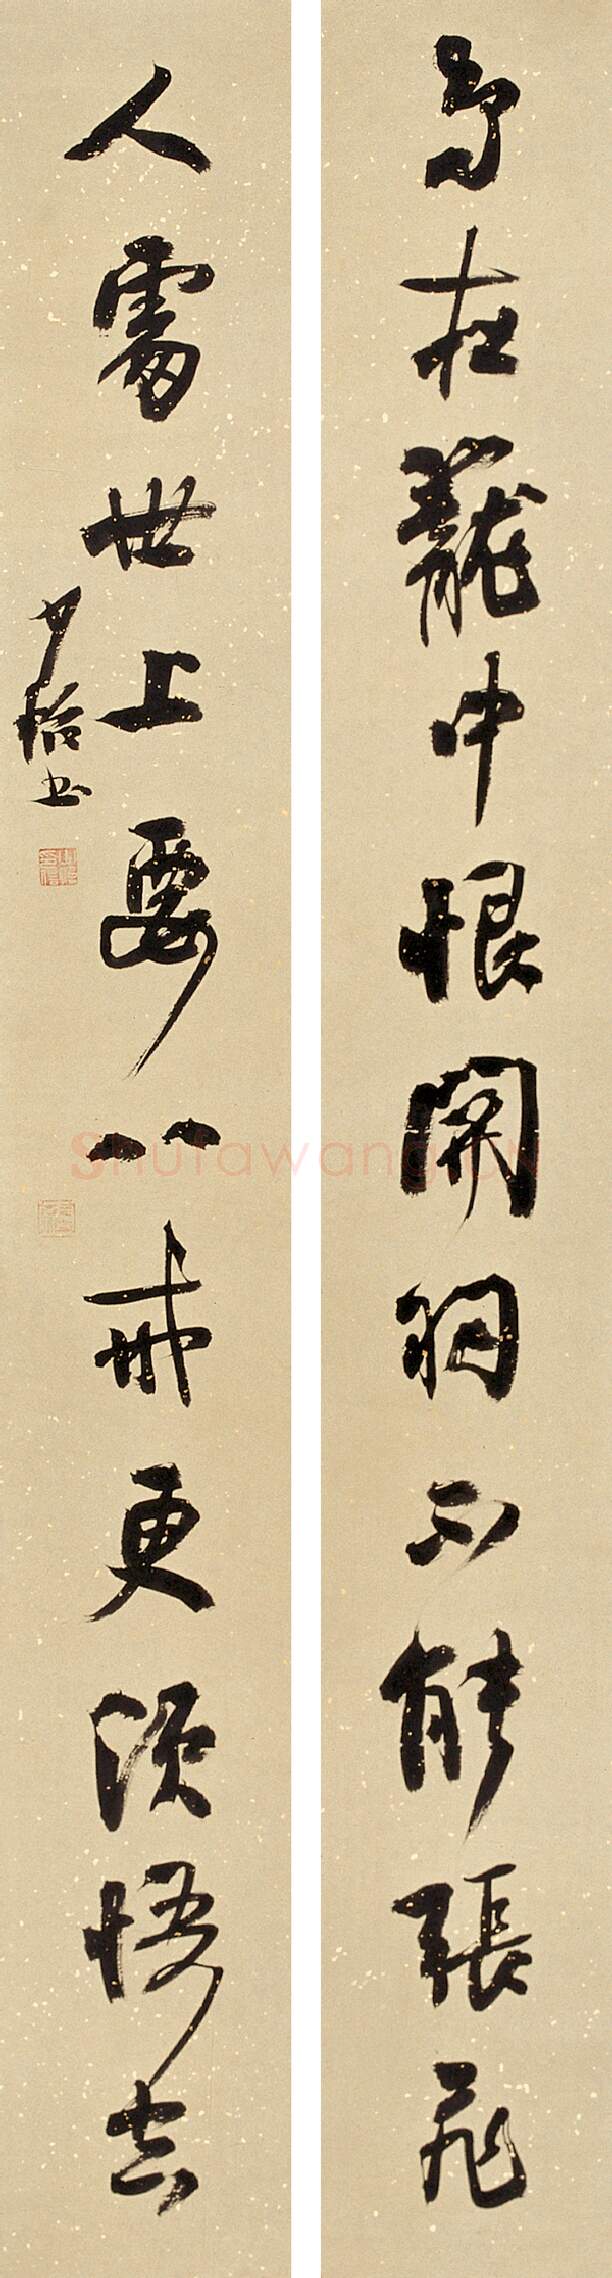 鳥在籠中恨關羽不能張飛
人處世上要八戒更須悟空
Shufawang.CN